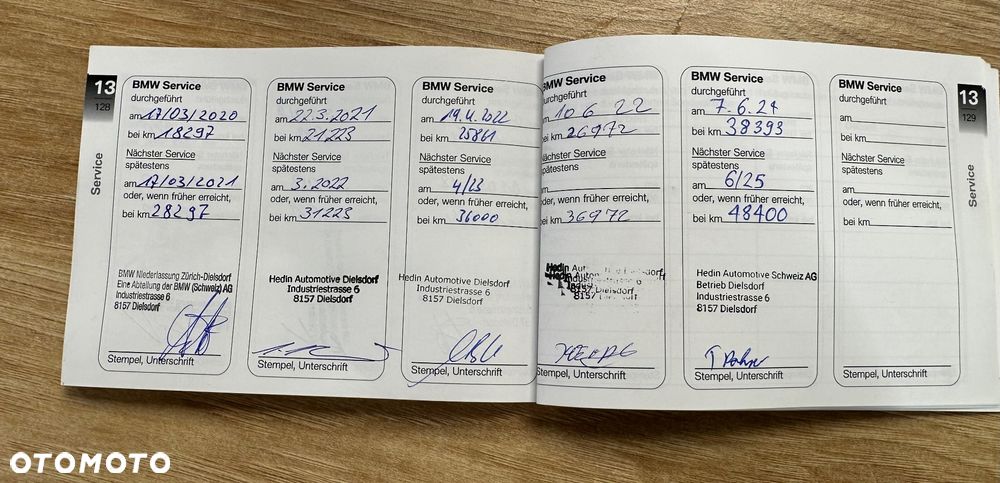 13
128
Service
BMW Service
durchgeführt
am 17/03/2020
bei km 18297
Nächster Service
spätestens
am 17/03/2021
oder, wenn früher erreicht,
bei km 28297
BMW Niederlassung Zürich-Dielsdorf
Eine Abteilung der BMW (Schweiz) AG
Industriestrasse 6
8157 Dielsdorf
Stempel, Unterschrift
BMW Service
durchgeführt
am 22.3.2021
bei km 21223
Nächster Service
spätestens
am 3.2022
oder, wenn früher erreicht,
bei km 31223
Hedin Automotive Dielsdorf
Industriestrasse 6
8157 Dielsdorf
Stempel, Unterschrift
BMW Service
durchgeführt
am 19.4.2022
bei km 25861
Nächster Service
spätestens
am 4/23
oder, wenn früher erreicht,
bei km 36000
Hedin Automotive Dielsdorf
Industriestrasse 6
8157 Dielsdorf
Stempel, Unterschrift
BMW Service
durchgeführt
am 10 6 22
bei km 26972
Nächster Service
spätestens
am
oder, wenn früher erreicht,
bei km 36972
Hedin
8157 Dielsdorf
Stempel, Unterschrift
BMW Service
durchgeführt
am 7.6.24
bei km 38393
Nächster Service
spätestens
am 6/25
oder, wenn früher erreicht,
bei km 48400
Hedin Automotive Schweiz AG
Betrieb Dielsdorf
Industriestrasse 6
8157 Dielsdorf
Stempel, Unterschrift
BMW Service
durchgeführt
am
bei km
Nächster Service
spätestens
am
oder, wenn früher erreicht,
bei km
Stempel, Unterschrift
13
129
Service
OTOMOTO